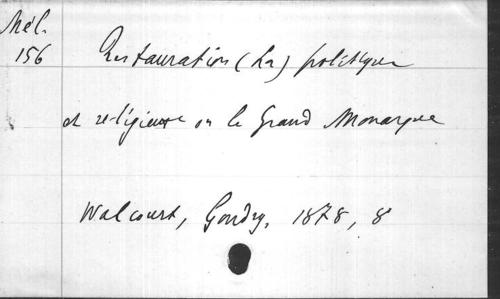 Mél.
156
Restauration (La) politique
et religieuse ou le Grand Monarque
Walcourt, Gondry, 1878, 8